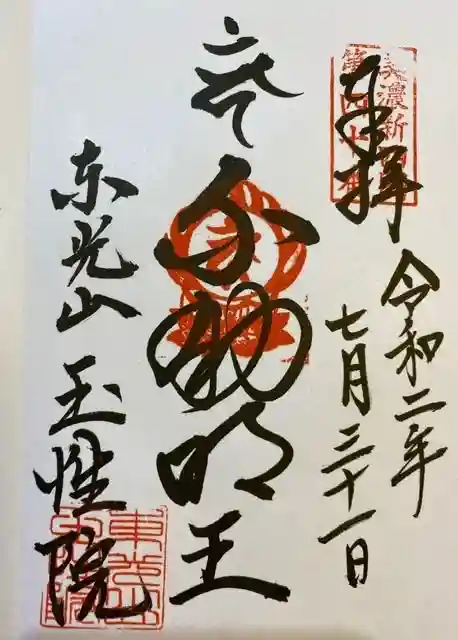 奉拝
美濃新四国
令和二年
七月三十一日
不動明王
東光山 玉性院